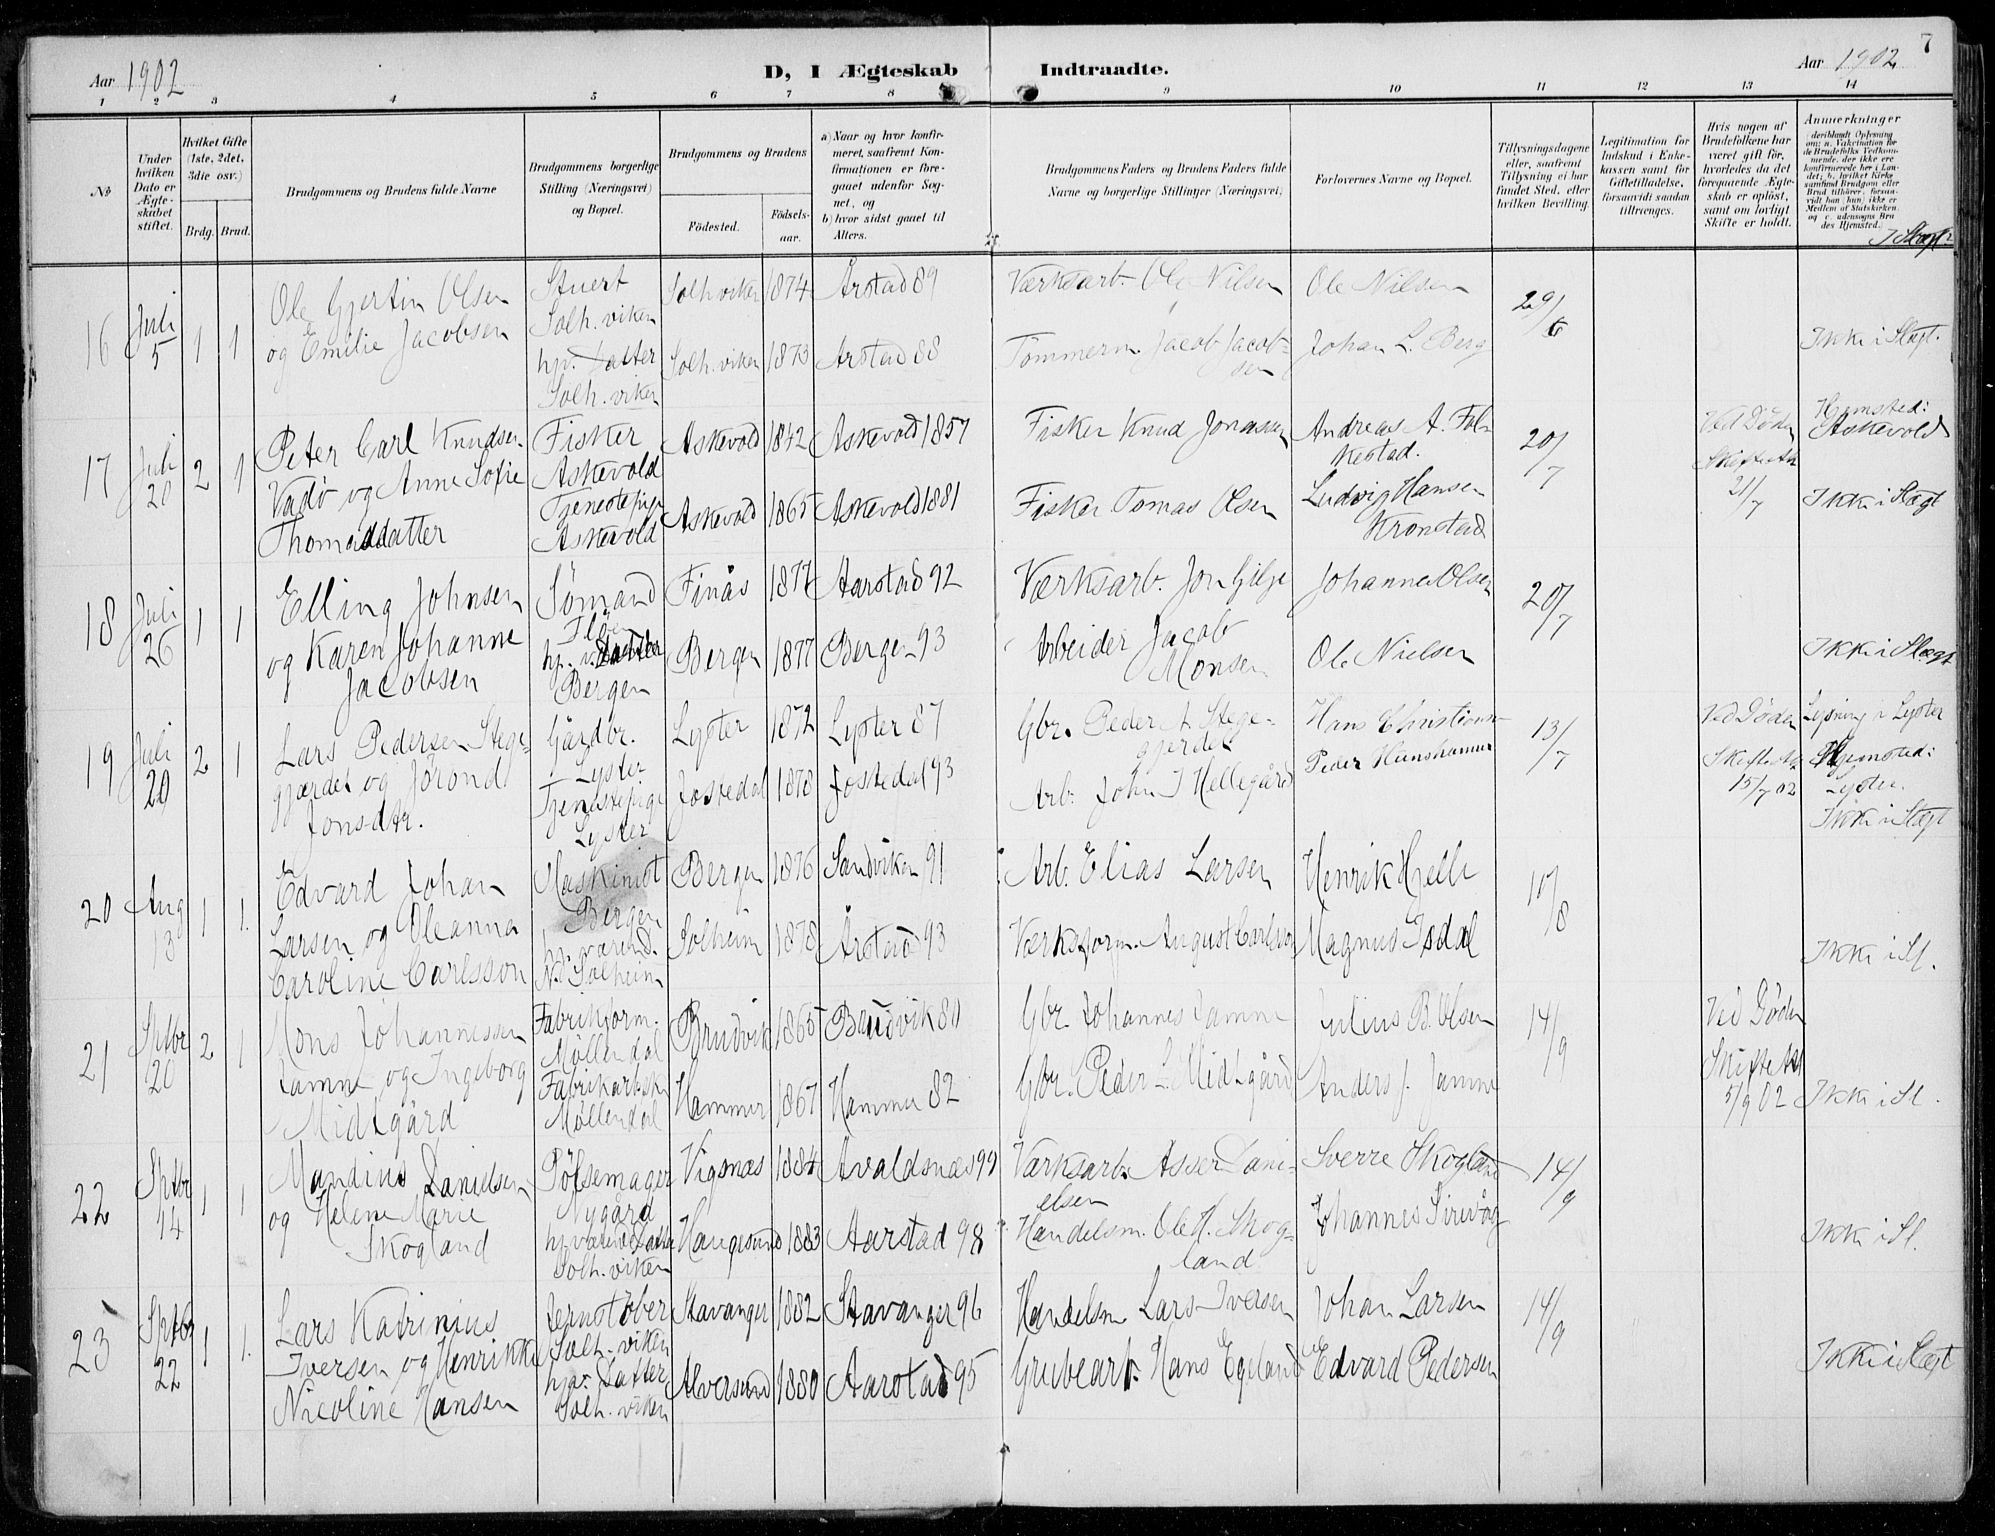 7
Aar 1902
D, I Ægteskab Indtraadte.
Aar 1902
1 2 3 4 5 6 7 8 9 10 11 12 13 14
No
Under hvilken Dato er Ægteskabet stiftet.
Hvilket Gifte (1ste, 2det, 3die osv.)
Brdg. Brud.
Brudgommens og Brudens fulde Navne
Brudgommens borgerlige Stilling (Næringsvei) og Bopæl.
Brudgommens og Brudens
Fødested. Fødsels-aar.
a) Naar og hvor konfirmeret, saafremt Konfirmationen er foregaaet udenfor Sognet, og
b) hvor sidst gaaet til Alters.
Brudgommens Faders og Brudens Faders fulde Navne og borgerlige Stillinger (Næringsvei)
Forlovernes Navne og Bopæl.
Tillysningsdagene eller, saafremt Tillysning ei har fundet Sted, efter hvilken Bevilling.
Legitimation for Indskud i Enkekassen samt for Giftetilladelse, forsaavidt saadan tiltrænges.
Hvis nogen af Brudefolkene har været gift før, hvorledes da det foregaaende Ægteskab er opløst, samt om lovligt Skifte er holdt.
Anmerkninger
(deriblandt Oplysning om: a. Vaccination for de Brudefolks Vedkommende, der ikke ere konfirmerede her i Landet; b. hvilket Kirkesamfund Brudgom eller Brud tilhører, forsaavidt han (hun) ikke er Medlem af Statskirken, og c. udensogns Brudes Hjemsted.)
I Slægt?
16 Juli 5 1 1
Ole Gjertin Olsen
og Emilie Jacobsen
Stuert
Solh.viken
hjv. Datter
Solh.viken
Solh.viken 1874 Årstad 89
Solh.viken 1873 Årstad 88
Værksarb. Ole Nilsen
Tømmerm. Jacob Jacob-
sen
Ole Nilsen
Johan L. Berg
29/6
Ikke i Slægt.
17 Juli 20 2 1
Peter Carl Knudsen
Vadø og Anne Sofie
Thomasdatter
Fisker
Askevold
Tjenestepige
Askevold
Askevold 1842 Askevold 1857
Askevold 1865 Askevold 1881
Fisker Knud Jonassen
Fisker Tomas Olsen
Andreas A. Fol-
kestad.
Ludvig Hansen
Kronstad
20/7
Ved Døden
Skifte Att
21/7
Hjemsted:
Askevold
Ikke i Slægt
18 Juli 26 1 1
Elling Johnsen
og Karen Johanne
Jacobsen
Sømand
hjv. Datter
Bergen
Finås 1877 Aarstad 92
Bergen 1877 Bergen 93
Værksarb. Jon Gilje
Arbeider Jacob
Monsen
Johannes Olsen
Ole Nielsen
20/7
Ikke i Slægt
19 Juli 20 2 1
Lars Pedersen Stege-
gjerdet og Jørond
Jonsdtr.
Gårdbr.
Lyster
Tjenestepige
Lyster
Lyster 1872 Lyster 87
Jostedal 1878 Jostedal 93
Gbr. Peder A Stege-
gjerdet
Arb. John I Hellegård
Hans Christiansen
Peder Hanshamar
13/7
Ved Døden
Skifte Att
15/7 02
Lysning i Lyster
Hjemsted:
Lyster.
Ikke i Slægt
20 Aug 13 1 1.
Edvard Johan
Larsen og Oleanna
Caroline Carlsson
Maskinist
Bergen
hjv. værend.
Nd. Solheim
Bergen 1876 Sandviken 91
Solheim 1878 Årstad 93
Arb. Elias Larsen
Værksform. August Carlsson
Henrik Hjelle
Magnus Isdal
10/8
Ikke i Sl.
21 Sptbr 20 2 1
Mons Johannessen
Jamne og Ingeborg
Midtgård
Fabrikform.
Møllendal
Fabrikarbske
Møllendal
Brudvik 1865 Brudvik 80
Hammer 1867 Hammer 82
Gbr. Johannes Jamne
Gbr. Peder L. Midtgård
Julius B. Olsen
Anders J. Jamne
14/9
Ved Døden
Skifte Att
5/9 02
Ikke i Sl.
22 Sptbr 14 1 1
Mandius Danielsen
og Helene Marie
Skogland
Pølsemager
Nygård
hjværende Datter
Solh.viken
Vigsnæs 1884 Avaldsnæs 99
Haugesund 1883 Aarstad 98
Værksarb. Asser Dani-
elsen
Handelsm. Ole H. Skog-
land
Sverre Skogland
Johannes Sirevåg
14/9
Ikke i Sl.
23 Sptbr 22 1 1.
Lars Katrinius
Iversen og Henrikke
Nicoline Hansen
Jernstøber
Solh.viken
hjv. Datter
Solh.viken
Stavanger 1882 Stavanger 96
Alversund 1880 Aarstad 95
Handelsm Lars Iversen
Grubearb. Hans Egeland
Johan Larsen
Edvard Pedersen
14/9
Ikke i Slægt